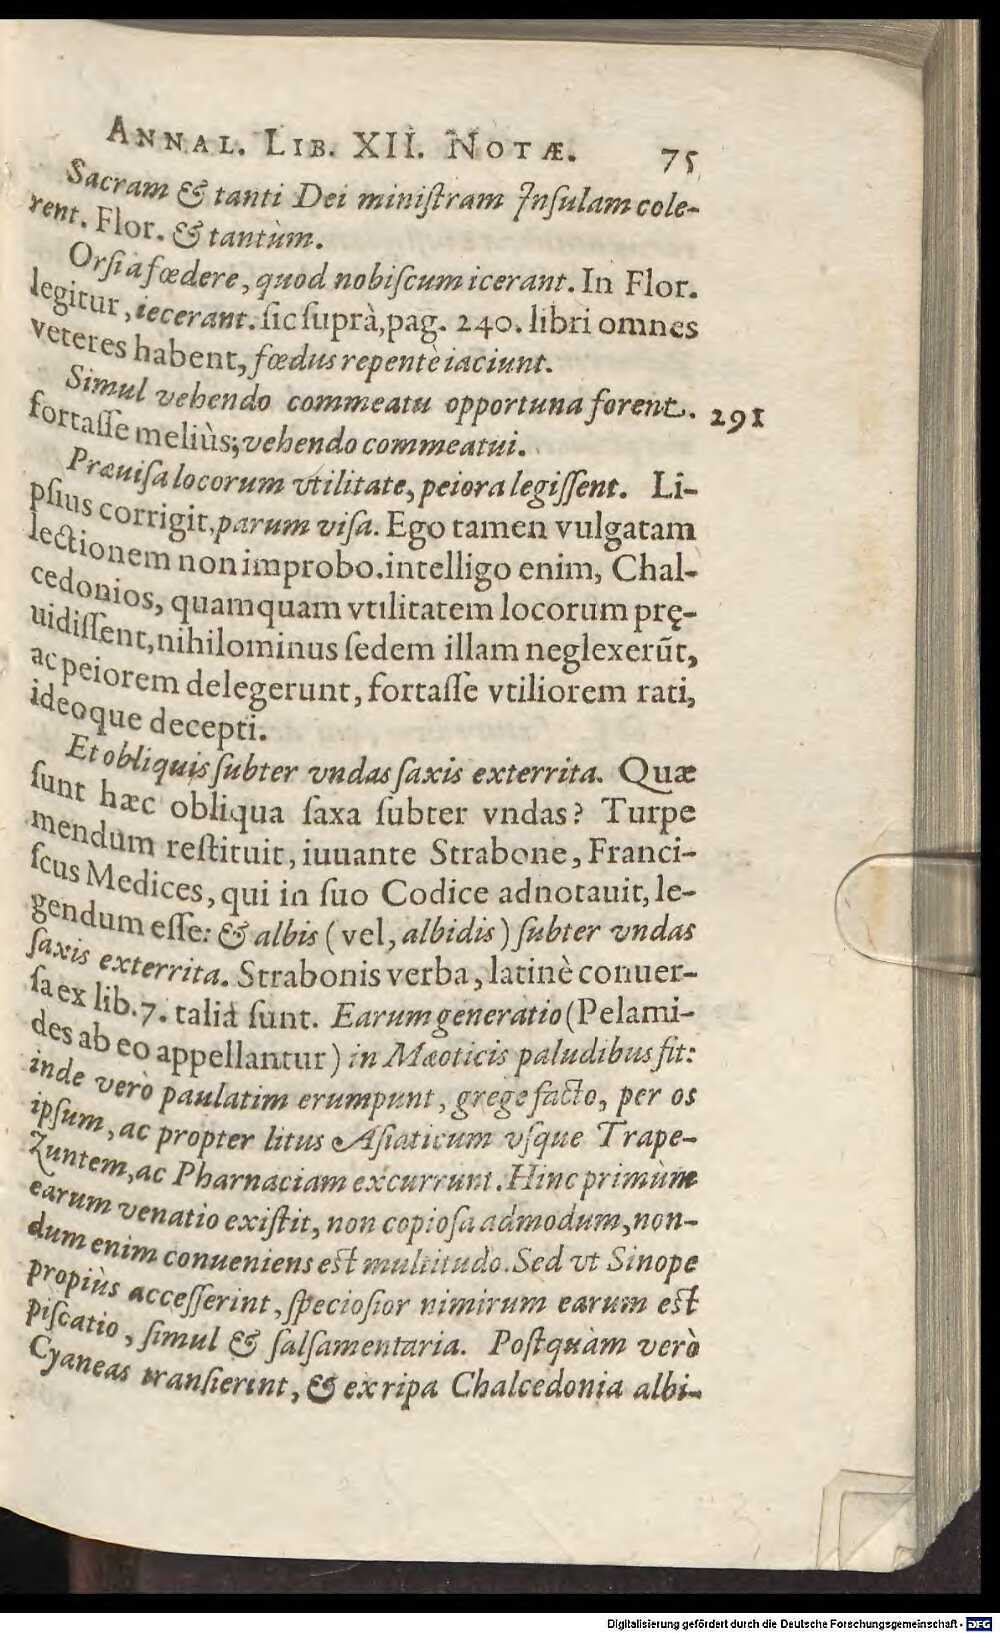 ANNAL. LIB. XII. NOTÆ. 75
Sacram & tanti Dei miniſtram Inſulam cole-
rent. Flor. & tantùm.
Orſi a fœdere, quod nobiſcum icerant. In Flor.
legitur, iecerant. ſic ſuprà, pag. 240. libri omnes
veteres habent, fœdus repentè iaciunt.
Simul vehendo commeatu opportuna forent. 291
fortaſſe meliùs; vehendo commeatui.
Præuiſa locorum vtilitate, peiora legiſſent. Li-
pſius corrigit, parum viſa. Ego tamen vulgatam
lectionem non improbo. intelligo enim, Chal-
cedonios, quamquam vtilitatem locorum prę-
uidiſſent, nihilominus ſedem illam neglexerūt,
ac peiorem delegerunt, fortaſſe vtiliorem rati,
ideoque decepti.
Et obliquis ſubter vndas ſaxis exterrita. Quæ
ſunt hæc obliqua ſaxa ſubter vndas? Turpe
mendum reſtituit, iuuante Strabone, Franci-
ſcus Medices, qui in ſuo Codice adnotauit, le-
gendum eſſe: & albis (vel, albidis) ſubter vndas
ſaxis exterrita. Strabonis verba, latinè conuer-
ſa ex lib. 7. talia ſunt. Earum generatio (Pelami-
des ab eo appellantur) in Mæoticis paludibus fit:
inde verò paulatim erumpunt, grege facto, per os
ipſum, ac propter litus Aſiaticum vſque Trape-
zuntem, ac Pharnaciam excurrunt. Hinc primùm
earum venatio exiſtit, non copioſa admodum, non-
dum enim conueniens eſt multitudo. Sed vt Sinope
propiùs acceſſerint, ſpecioſior nimirum earum eſt
piſcatio, ſimul & ſalſamentaria. Poſtquàm verò
Cyaneas tranſierint, & ex ripa Chalcedonia albi-
Digitalisierung gefördert durch die Deutsche Forschungsgemeinschaft - DFG